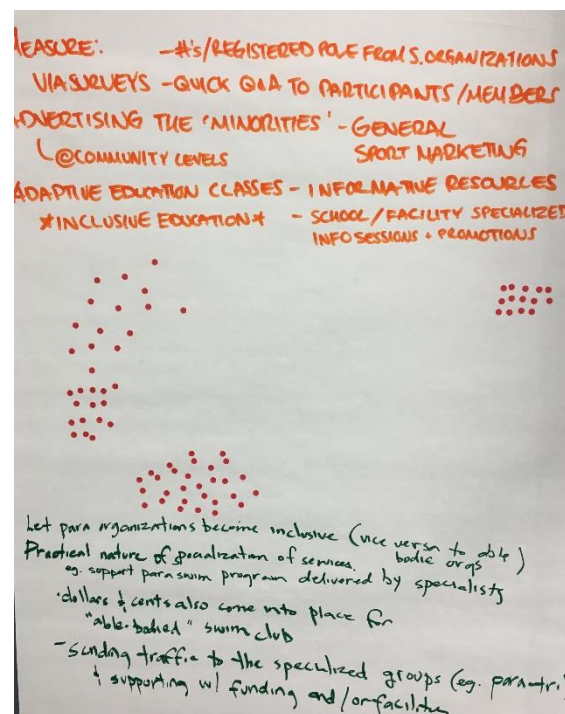 MEASURE: - #'s/REGISTERED POLE FROM S. ORGANIZATIONS
VIA SURVEYS - QUICK Q&A TO PARTICIPANTS/MEMBERS
ADVERTISING THE 'MINORITIES' - GENERAL
@COMMUNITY LEVELS SPORT MARKETING
ADAPTIVE EDUCATION CLASSES - INFORMATIVE RESOURCES
*INCLUSIVE EDUCATION* - SCHOOL/FACILITY SPECIALIZED
INFO SESSIONS + PROMOTIONS
Let para organizations become inclusive (vice versa to able
bodie orgs)
Practical nature of specialization of services.
eg. support para swim program delivered by specialists
· dollars & cents also come into place for
"able-bodied" swim club
- sending traffic to the specialized groups (eg. para-tri
& supporting w/ funding and/or facilities